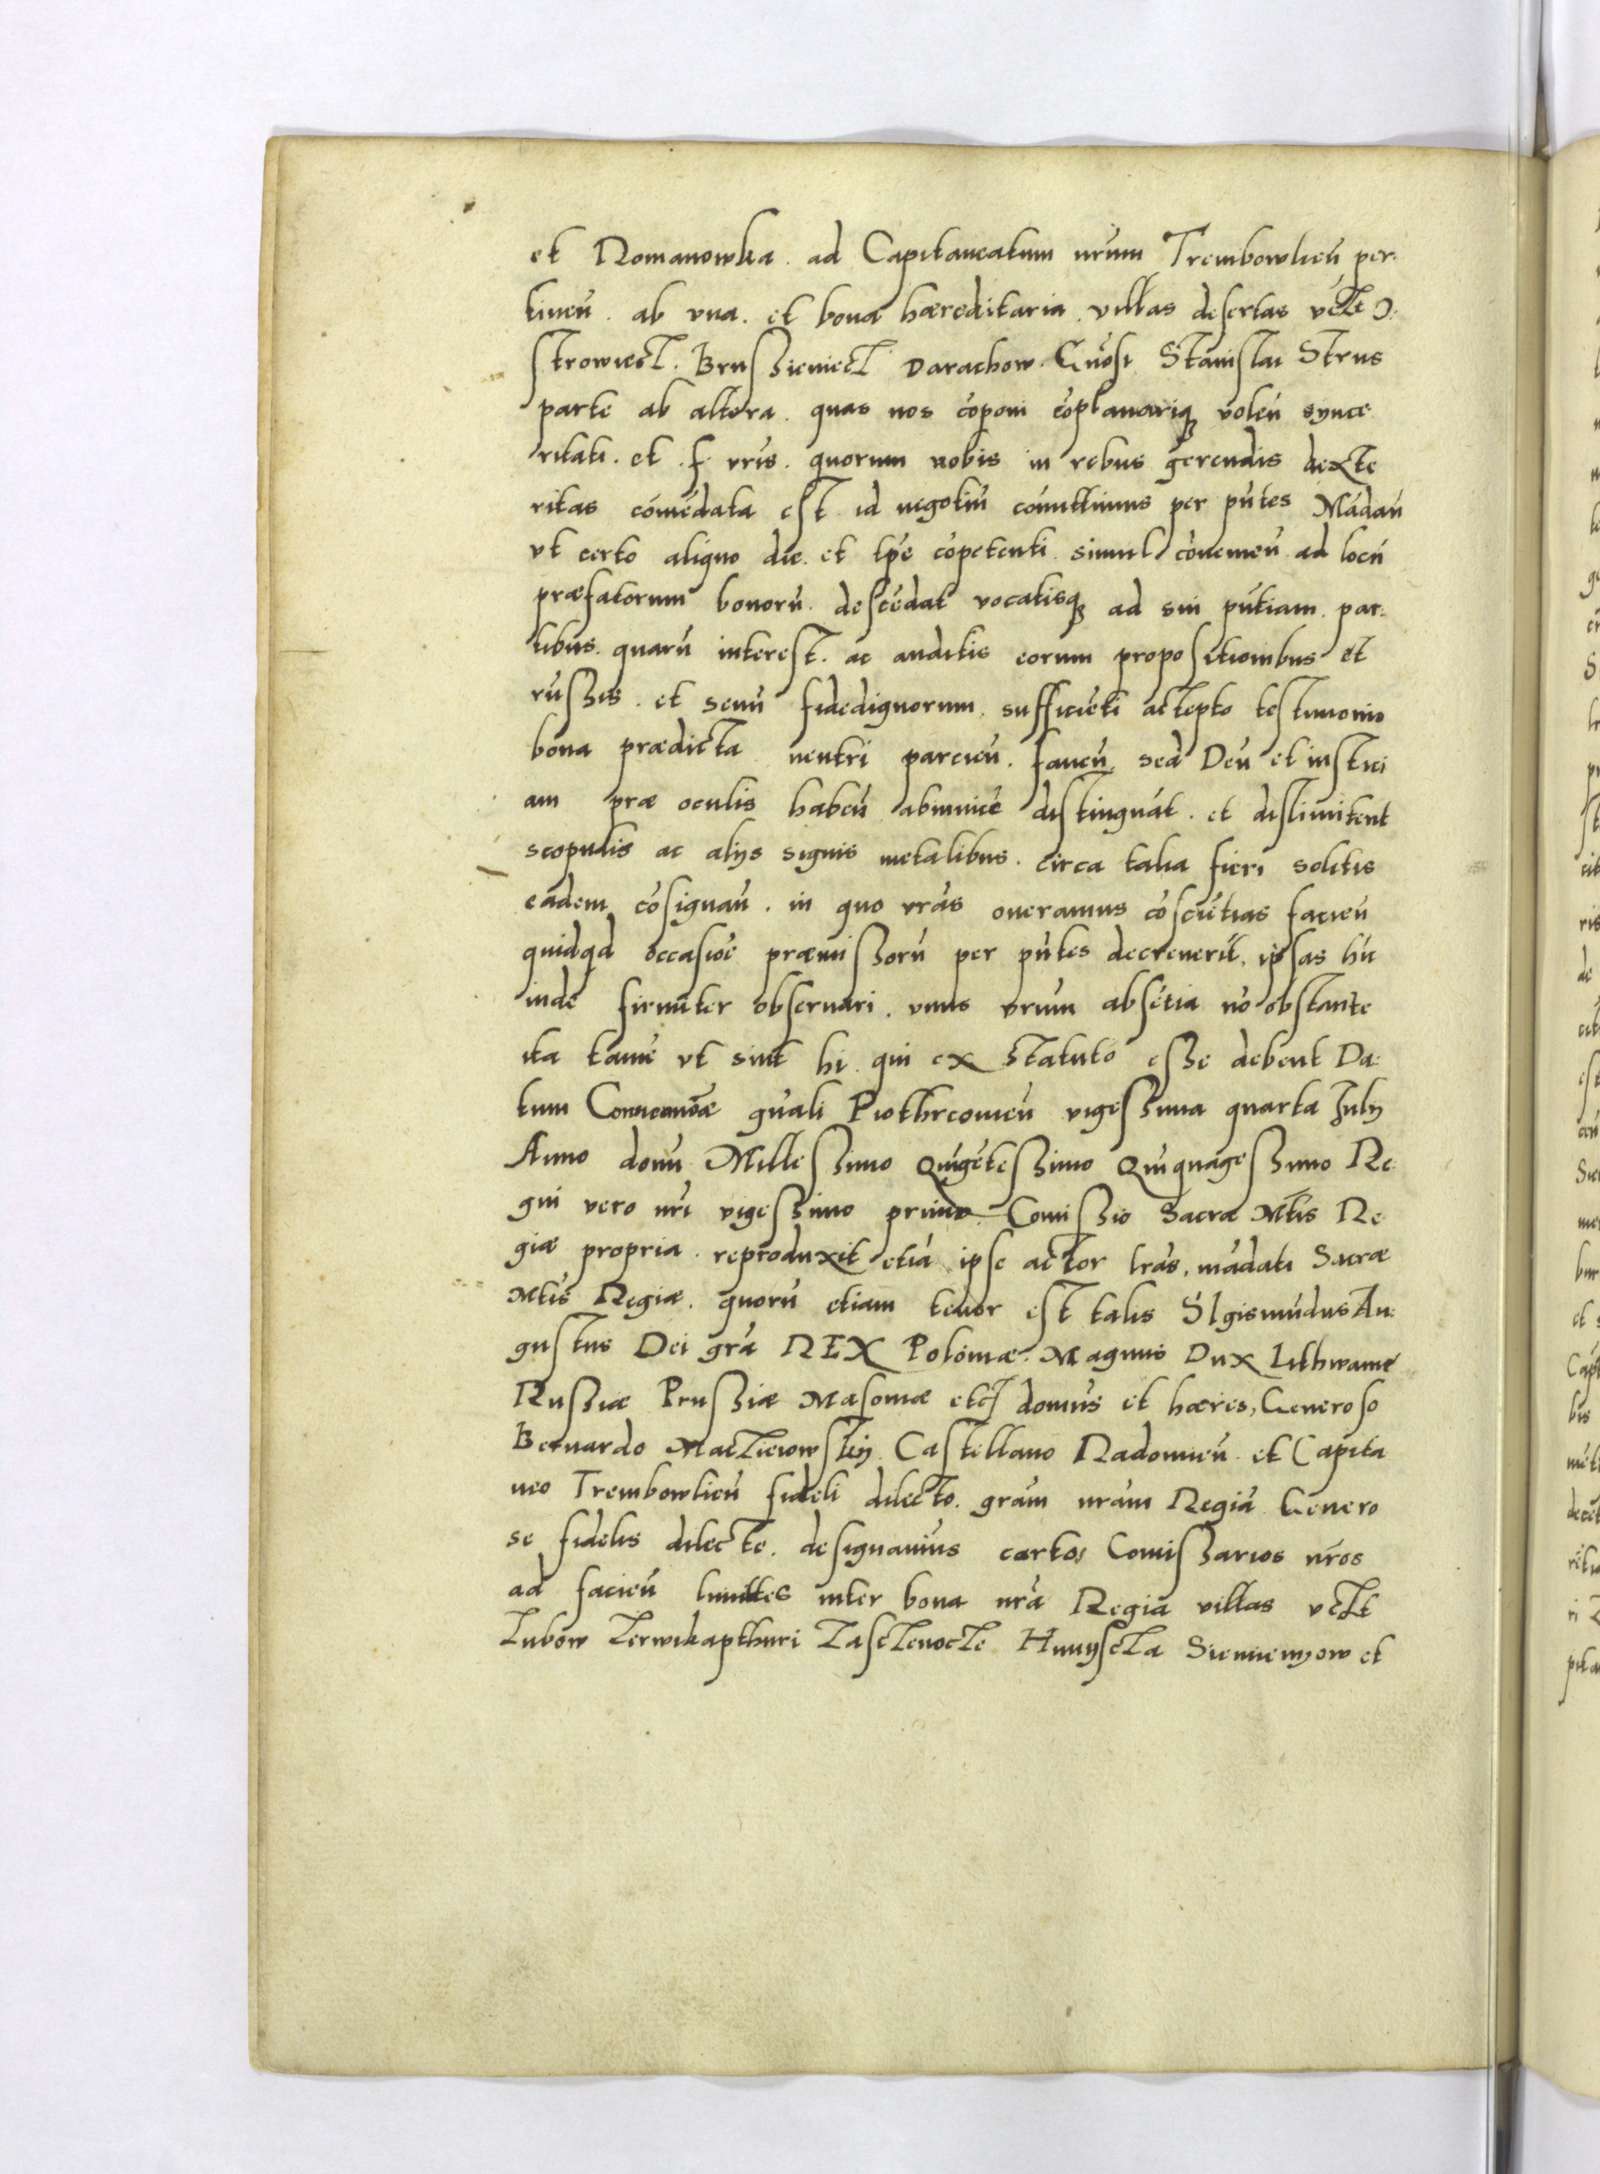 et Romanowka . ad Capitaneatum nrum Trembowlien per-
tinen . ab vna . et bona hæreditaria . villas desertas vclt O-
strowiecz . Brusszieniecz Darachow . Gnosi Stanislai Strus
parte ab altera . quas nos coponi coplanariq volen synce
ritati . et . f . vris . quorum nobis in rebus gerendis dexte
ritas comedata est id negotiu comittimus per pntes Madan
vt certo aliquo die . et tpe copetenti simul convenien ad locu
præfatorum bonoru . descedat vocatisq ad sui pntiam . par-
tibus . quaru interest . ac auditis eorum propositionibus et
russzis . et senu fidedignorum . sufficieti acCepto testimonio
bona prædicta neutri parcien . faven sed Deu et iustici
am præ oculis haben abinvice distinguat . et dislimitent
scopulis ac alijs signis metalibus . circa talia fieri solitis
eadem cosignan . in quo vras oneramus coscietias facien
quidqd occasioe præmiszoru per pntes decreverit . ipsas hu
inde firmiter observari . vnius vrum absetia no obstante
ita tame vt sint hi qui ex statuto esse debent Da-
tum Convenōæ gnali Piothrcovien vigeszima quarta Julij
Anno domi Milleszimo Quigeteszimo Quiquageszimo Re-
gni vero nri vigeszimo primo Comiszio Sacræ Mtis Re-
giæ propria . reproduxit etia ipse actor lras . madati Sacræ
Mtis Regiæ . quoru etiam tenor est talis SIgismudus Au-
gustus Dei gra REX Poloniæ . Magnus Dux Lithwaniæ
Rusziæ Prusziæ Masoviæ etc domus et hæres, Generoso
Bernardo Macziewskij Castellano Radomien . et Capita
neo Trembowlien fideli dilecto . gram nram Regia Genero
se fidelis dilecte . designavius certos Comiszarios nros
ad facien limittes inter bona nra Regia villas vclt
Zubow Zerwikapthuri Zasczenocze Hnnijscza Siennienyow et